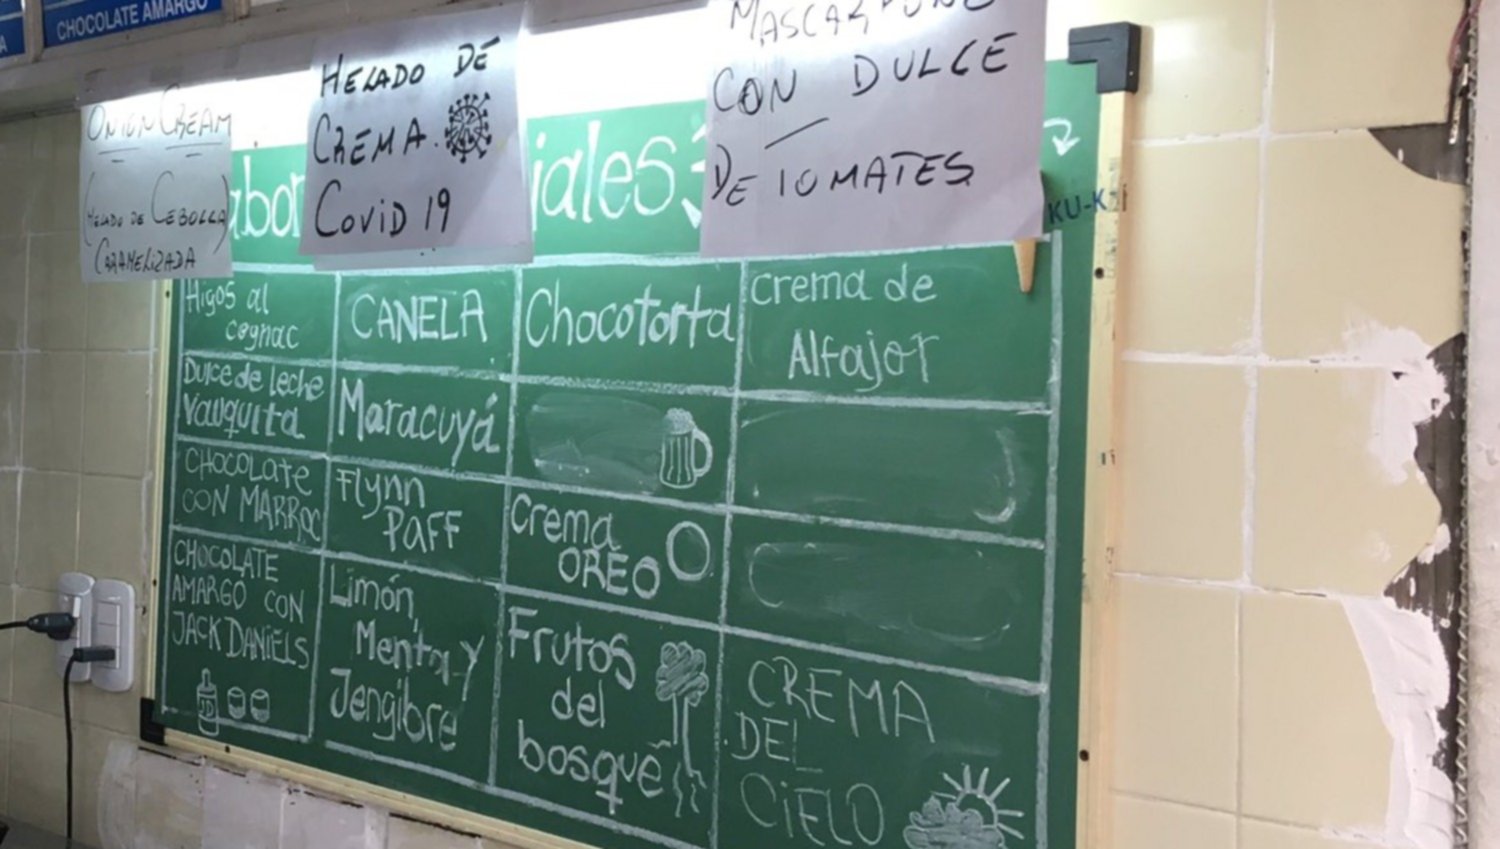 CHOCOLATE AMARGO
A
ONION CREAM
(HELADO DE CEBOLLA)
CARAMELIZADA
HELADO DE
CREMA.
COVID 19
MASCARPONE
CON DULCE
DE TOMATES
abor
iales
KU-K
Higos al
cognac
CANELA
Chocotorta
crema de
Alfajor
Dulce de leche
Vauquita
Maracuyá
CHOCOLATE
CON MARROC
Flynn
PAFF
Crema
OREO
CHOCOLATE
AMARGO CON
JACK DANIELS
JD
Limón,
Menta y
Jengibre
Frutos
del
bosque
CREMA
DEL
CIELO